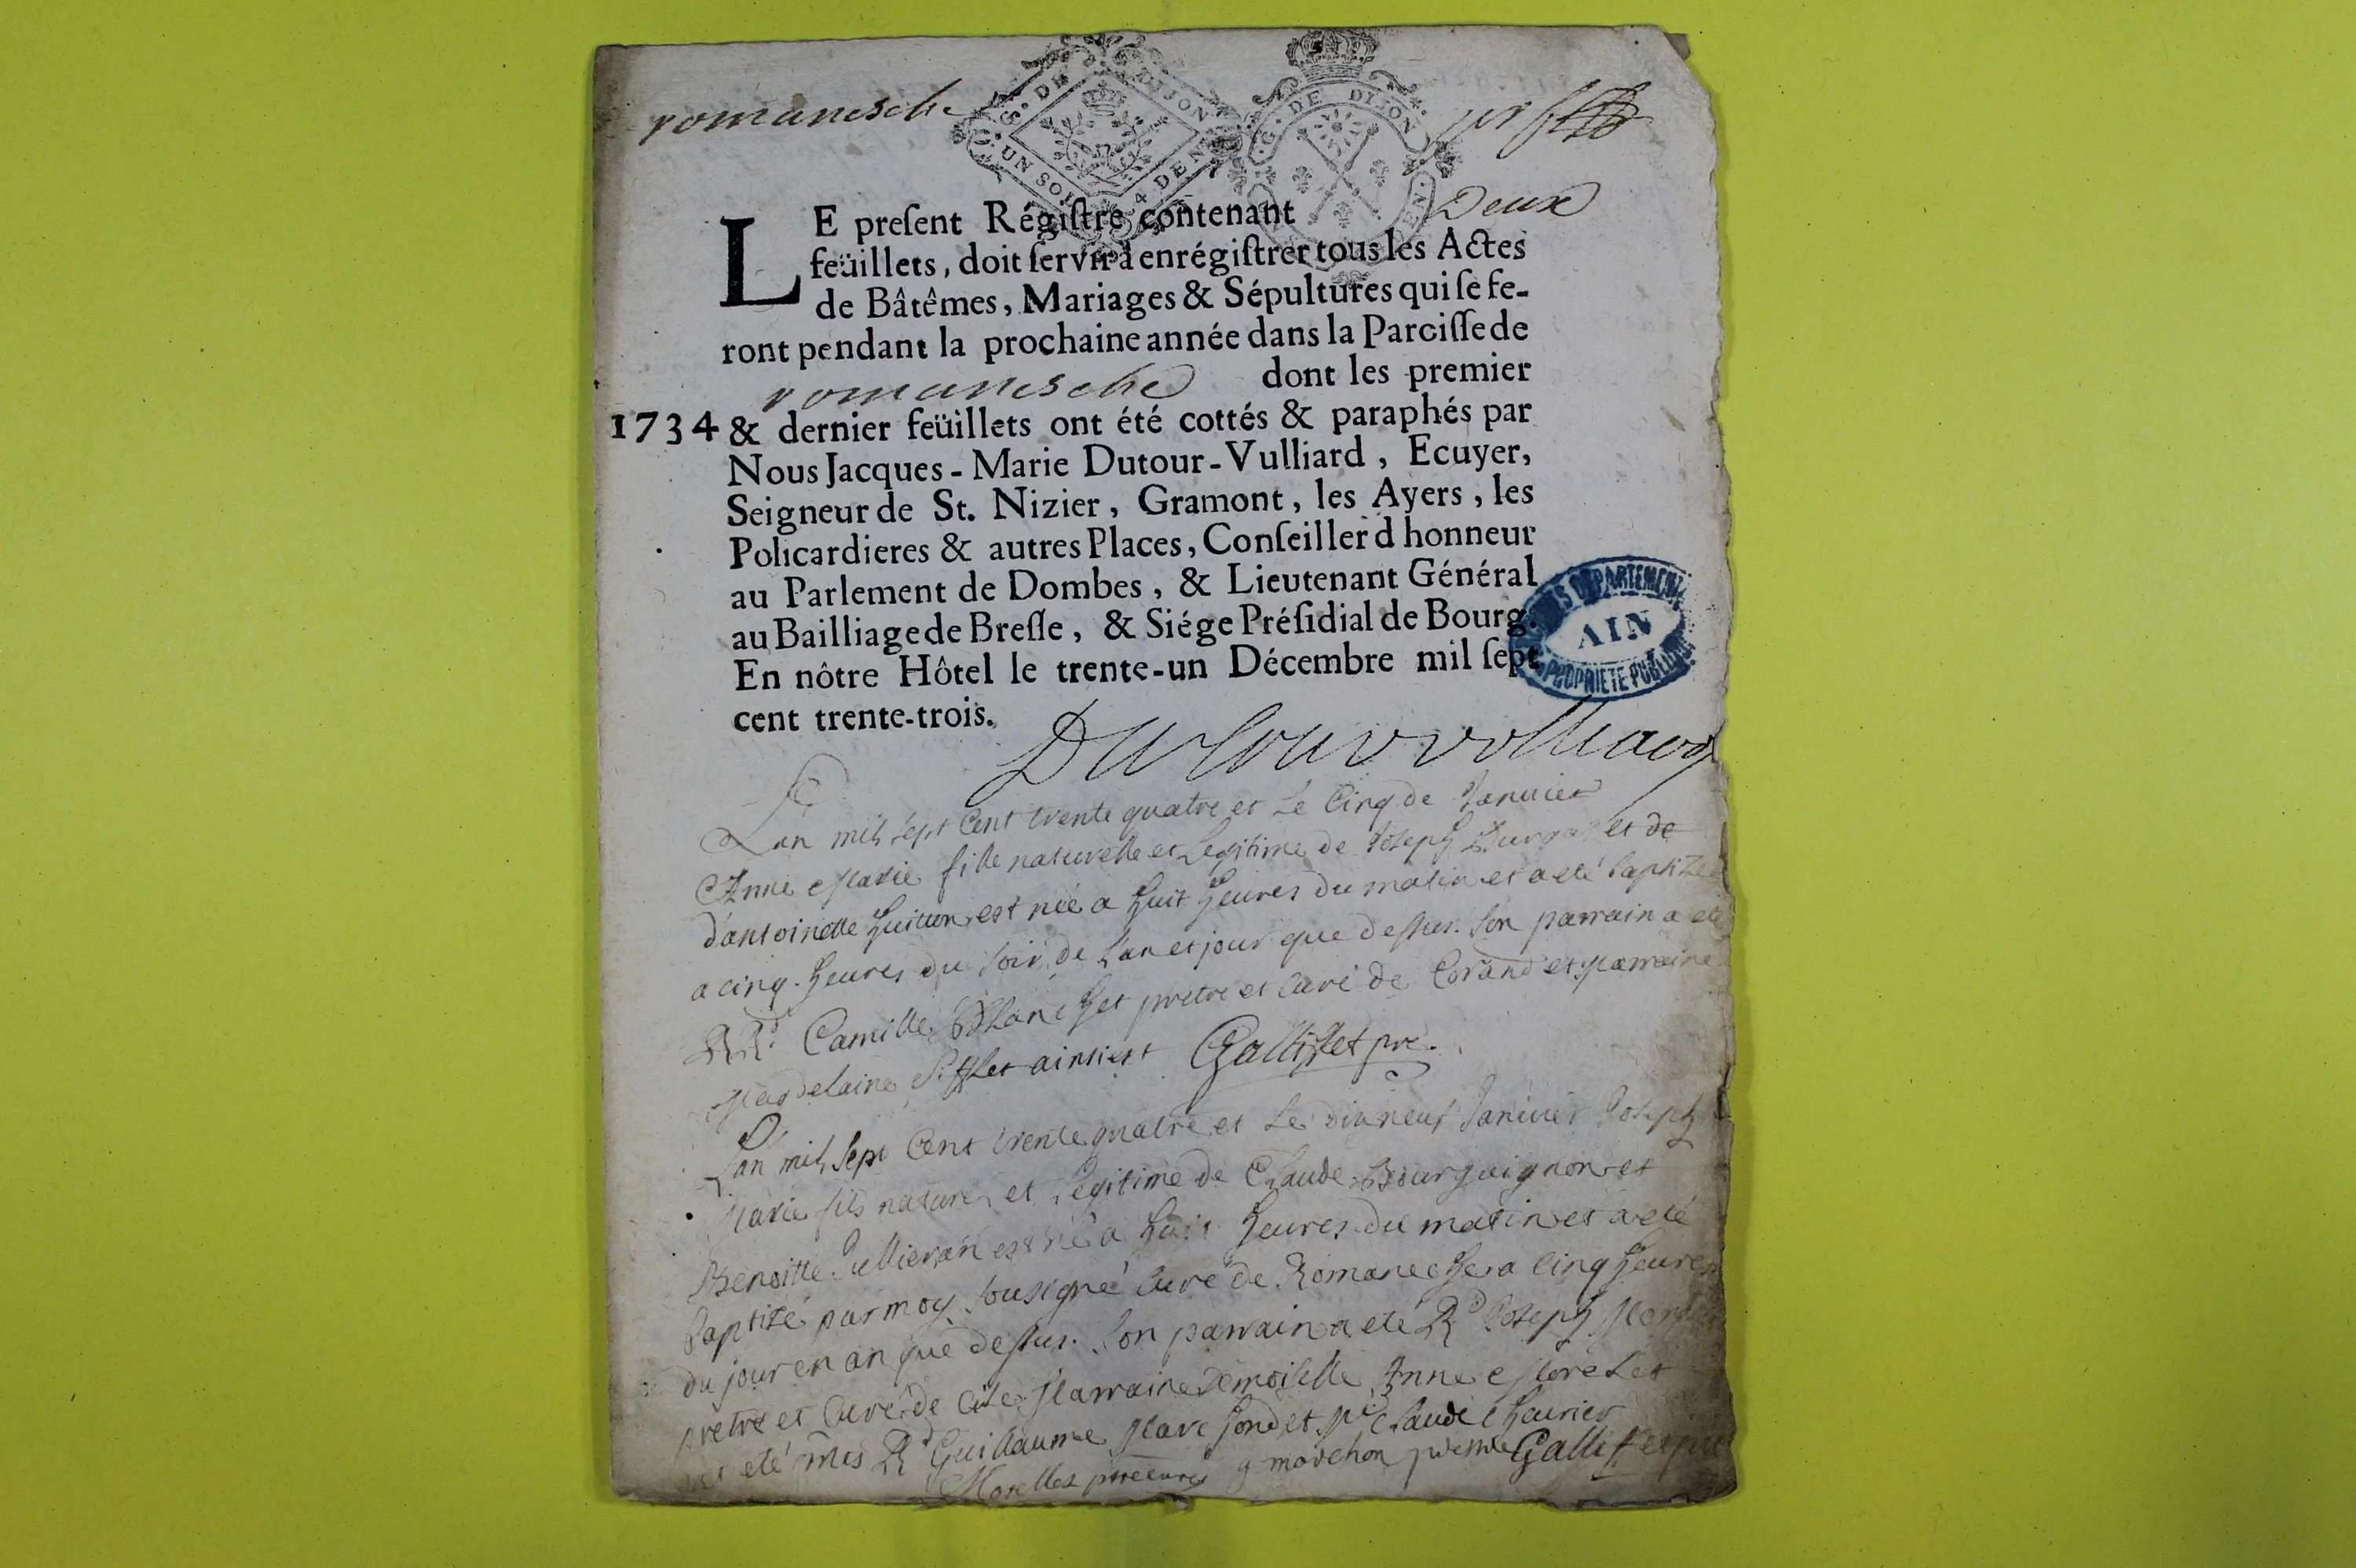 romanesche
G. DE DIJON
UN SOL 4 DEN
G. DE DIJON
DEN.
LE preſent Régiſtre contenant Deux
feüillets, doit ſervir à enrégiſtrer tous les Actes
de Bâtêmes, Mariages & Sépultures qui ſe fe-
ront pendant la prochaine année dans la Paroiſſe de
romanesche dont les premier
1734 & dernier feüillets ont été cottés & paraphés par
Nous Jacques-Marie Dutour-Vulliard, Ecuyer,
Seigneur de St. Nizier, Gramont, les Ayers, les
Policardieres & autres Places, Conſeiller d honneur
au Parlement de Dombes, & Lieutenant Général
au Bailliage de Breſſe, & Siége Préſidial de Bourg.
En nôtre Hôtel le trente-un Décembre mil ſept
cent trente-trois.
DEPARTEMENT
AIN
PROPRIETE PUBLIQUE
Dutour vulliard
Lan mil sept Cent trente quatre et Le Cinq de Janvier
Anne Marie fille naturelle et Legitime de Joseph et de
d'antoinette est née a huit heures du matin et a eté baptizée
a cinq heures du soir de Lan et jour que dessus. Son parrain a eté
Rd. Camille Blanchet pretre et Curé de Corand et Marraine
Magdelaine ainsi est Galliffet pre.
Lan mil sept Cent trente quatre et Le dixneuf Janvier Joseph
Marie fils naturel et Legitime de Claude Bourguignon et
Benoitte est né a huit heures du matin et a eté
baptizé par moy sousigné Curé de Romaneche a Cinq heures
du jour en an que dessus. Son parrain a eté Rd Joseph
pretre et Curé de Marraine demoiselle Anne Morelet
eté Rd Guillaume et Claude
Morellet g marchon Galliffet